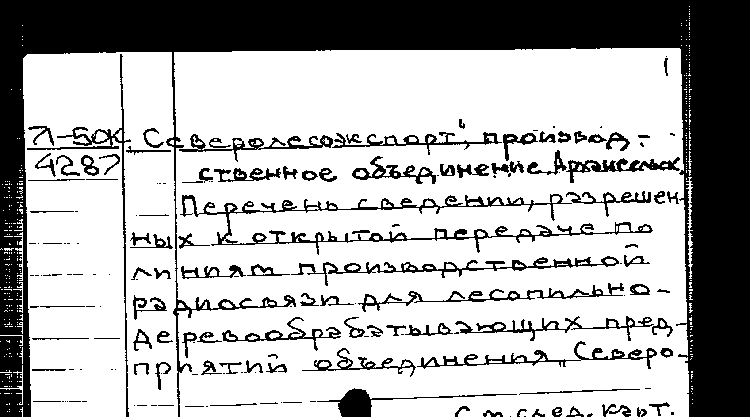 1
Л-50К „Северолесоэкспорт“, производ-
4287 ственное объединение. Архангельск.
Перечень сведений, разрешен-
ных к открытой передаче по
линиям производственной
радиосвязи для лесопильно-
деревообрабатывающих пред-
приятий объединения „Северо-
См. след. карт.